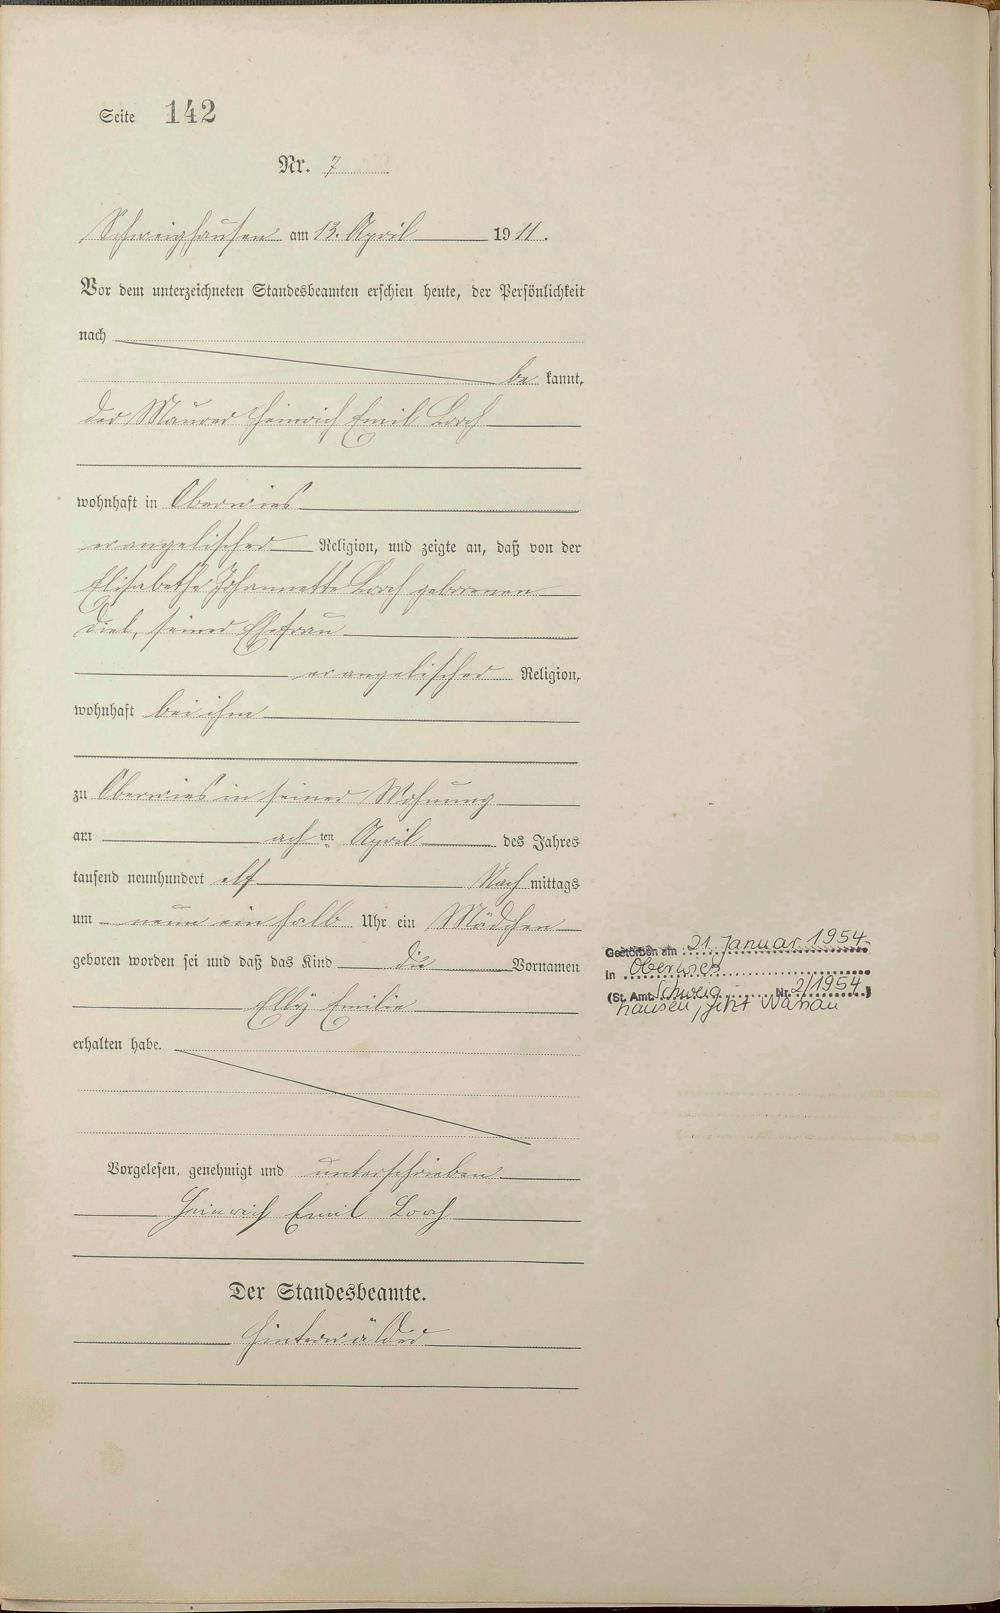 Seite 142
Nr. 7
Schweighausen am 13. April 1911.
Vor dem unterzeichneten Standesbeamten erschien heute, der Persönlichkeit
nach
be kannt,
der Maurer Heinrich Emil Lorch
wohnhaft in Oberwies
evangelischer Religion, und zeigte an, daß von der
Elisabethe Johannette Lorch geborenen
Diel, seiner Ehefrau
evangelischer Religion,
wohnhaft bei ihm
zu Oberwies in seiner Wohnung
am ach ten April des Jahres
tausend neunhundert elf Nach mittags
um neun ein halb Uhr ein Mädchen
geboren worden sei und daß das Kind die Vornamen
Elly Emilie
erhalten habe.
Vorgelesen, genehmigt und unterschrieben
Heinrich Emil Lorch
Der Standesbeamte.
Hinterwälder
Gestorben am 21. Januar 1954
in Oberwies
(St. Amt Schweig Nr. 2/1954)
hausen, jetzt